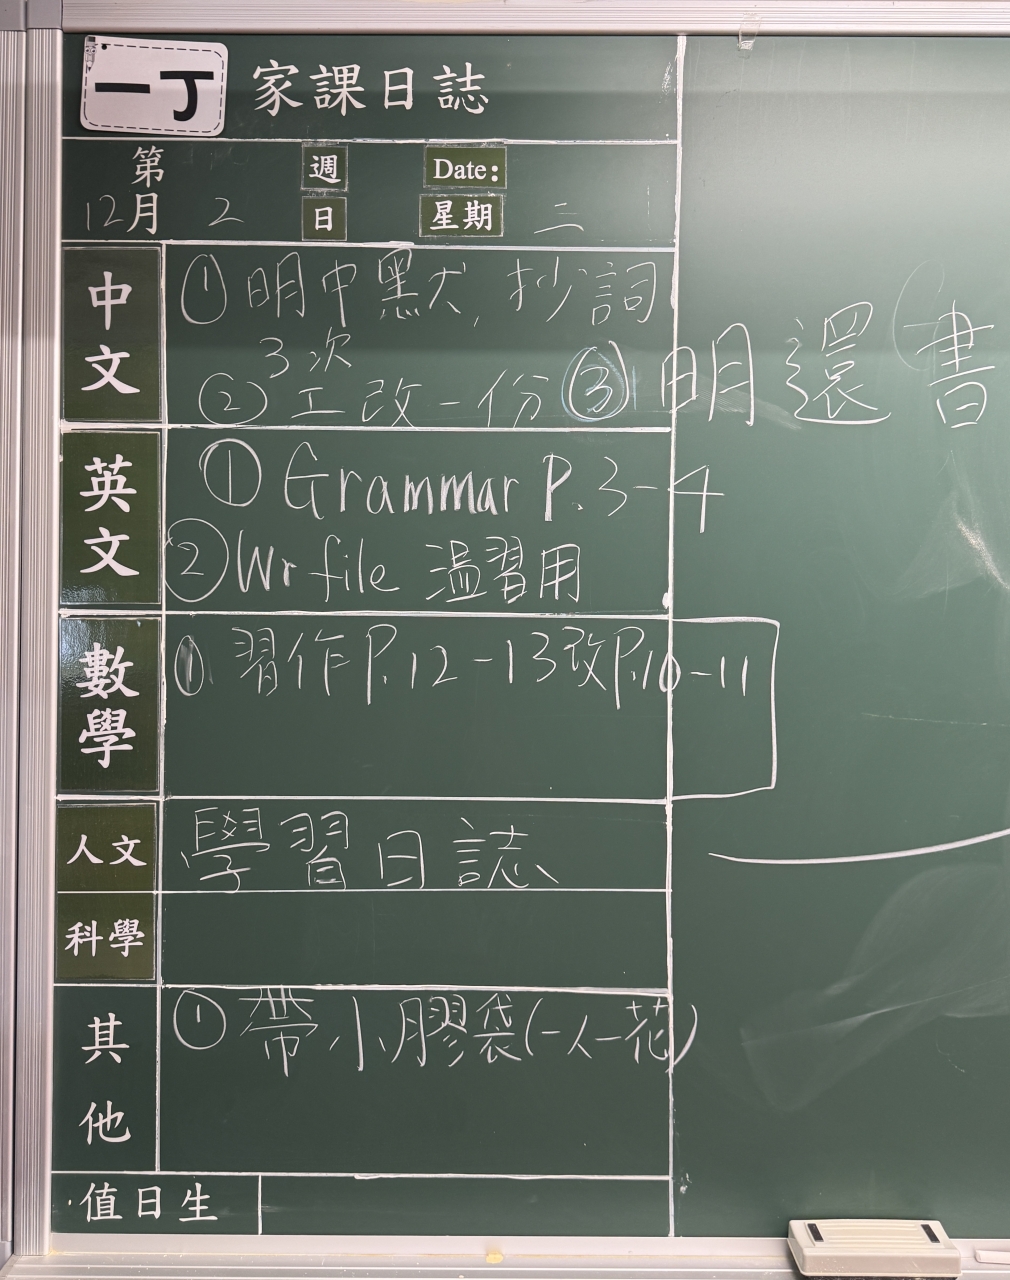 一丁 家課日誌
第 週 Date:
12月 2 日 星期 二
中文
①明中默, 抄詞
3次
②工改一份 ③明還書
英文
① Grammar P.3-4
② Wr file 溫習用
數學
① 習作 P.12-13改P.10-11
人文
學習日誌
科學
其他
① 帶小膠袋(一人一花)
值日生